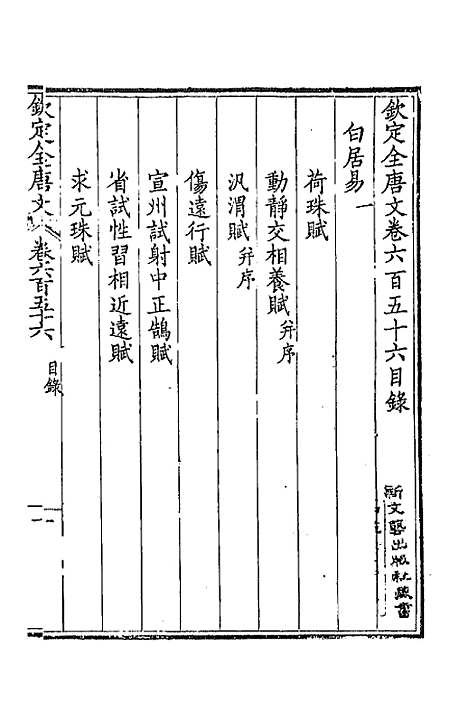 欽定全唐文卷六百五十六目錄
白居易一
荷珠賦
動靜交相養賦并序
汎渭賦并序
傷遠行賦
宣州試射中正鵠賦
省試性習相近遠賦
求元珠賦
欽定全唐文
卷六百五十六
目錄
一
新文藝出版社藏書